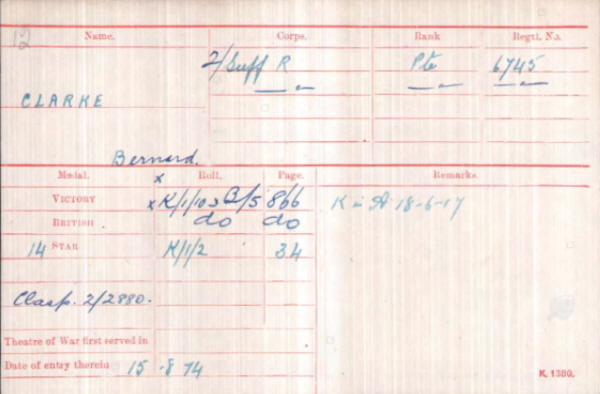 12
Name. Corps. Rank Regtl. No.
2/Suff R Pte 6745
CLARKE — " — — " —
Bernard.
Medal. Roll. Page. Remarks.
x
VICTORY x K/1/103 B/5 866 K in A 18-6-17
BRITISH do do
14 STAR K/1/2 34
Clasp. 2/2880.
Theatre of War first served in
Date of entry therein 15 .8 14
K. 1380.